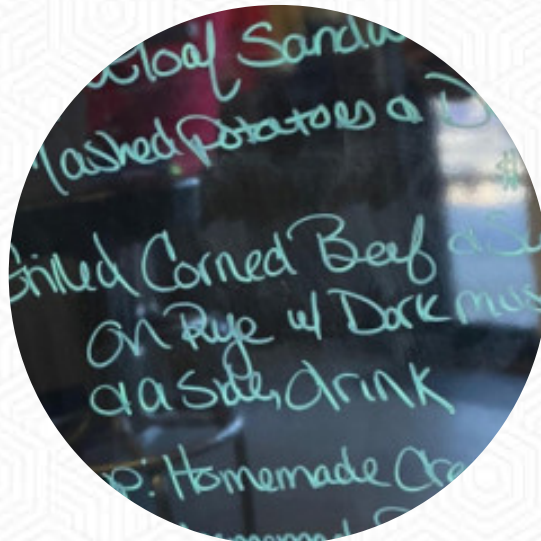 loaf Sandw
Mashed potatoes &
$
Grilled Corned Beef & Sw
on Rye w/ Dark mus
& a side, drink
p: Homemade Cre